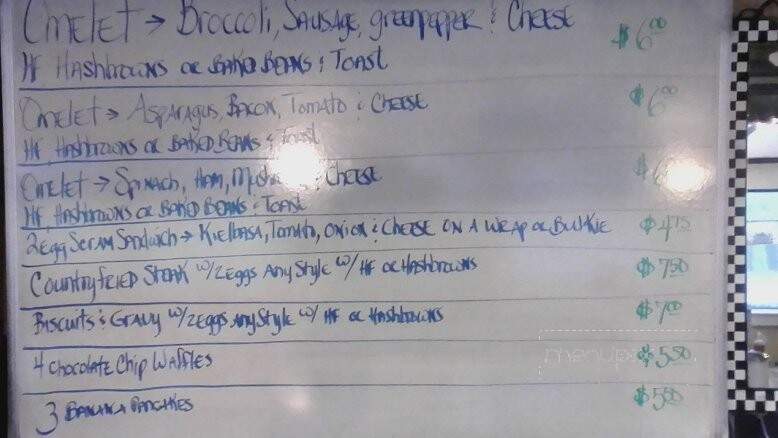 Omelet → Broccoli, Sausage, greenpepper & Cheese $6.00
HF, Hashbrowns or Baked Beans & Toast
Omelet → Asparagus, Bacon, Tomato & Cheese $6.00
HF, Hashbrowns or Baked Beans & Toast
Omelet → Spinach, Ham, & Cheese $6
HF, Hashbrowns or Baked Beans & Toast
2 Egg Scram Sandwich → Kielbasa, Tomato, Onion & Cheese on a Wrap or Bulkie $4.75
Country Fried Steak w/ 2 Eggs Any Style w/ HF or Hashbrowns $7.50
Biscuits & Gravy w/ 2 Eggs Any Style w/ HF or Hashbrowns $7.00
4 Chocolate Chip Waffles $5.50
3 Banana Pancakes $5.00